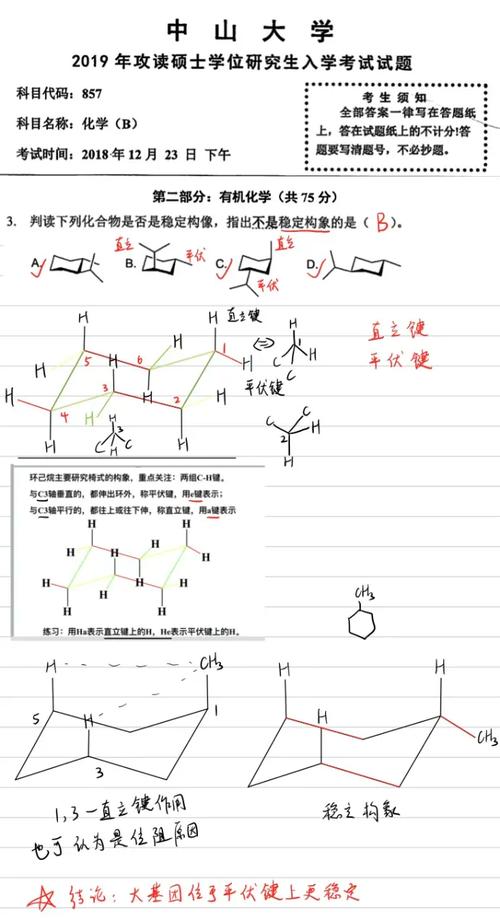 中山大学
2019年攻读硕士学位研究生入学考试试题
科目代码：857
科目名称：化学（B）
考试时间：2018年12月23日 下午
考生须知
全部答案一律写在答题纸
上，答在试题纸上的不计分！答
题要写清题号，不必抄题。
第二部分：有机化学（共75分）
3. 判读下列化合物是否是稳定构像，指出不是稳定构象的是（ B ）。
A. B. 直立 平伏 C. 直立 平伏 D.
H H 直立键 H
H H H 1 H
5 6 1 H C C
直立键
平伏键
H 3 H 2 平伏键
4 H H
H H 3 H H
C C H
C C 2 H H
环己烷主要研究椅式的构象，重点关注：两组C-H键。
与C3轴垂直的，都伸出环外，称平伏键，用e键表示；
与C3轴平行的，都往上或往下伸，称直立键，用a键表示
H H
H H H H
H H H H
H H
练习：用Ha表示直立键上的H，He表示平伏键上的H。
CH3
H CH3 H H
5 H 1 H CH3
3
1,3-直立键作用
也可认为是位阻原因
稳定构象
结论：大基因位于平伏键上更稳定